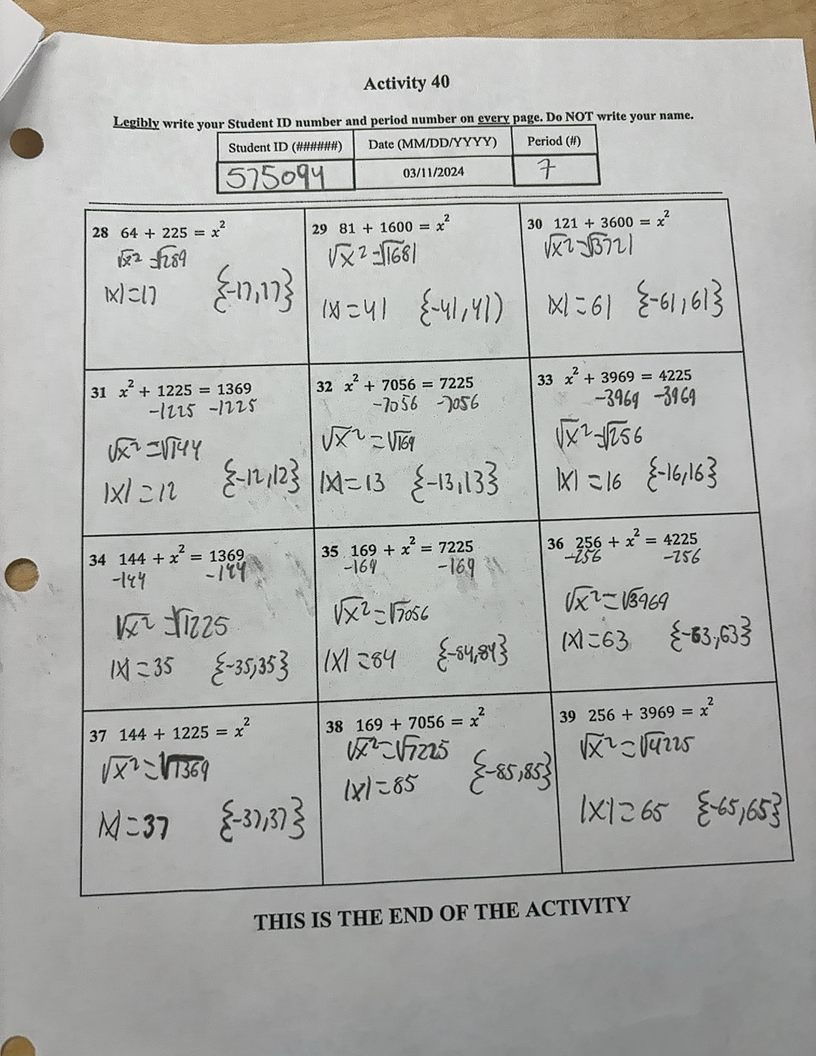 Activity 40
Legibly write your Student ID number and period number on every page. Do NOT write your name.
Student ID (######) Date (MM/DD/YYYY) Period (#)
575094 03/11/2024 7
28 64 + 225 = x²
√x² = √289
|x| = 17 {-17,17}
29 81 + 1600 = x²
√x² = √1681
|x| = 41 {-41,41)
30 121 + 3600 = x²
√x² = √3721
|x| = 61 {-61,61}
31 x² + 1225 = 1369
-1225 -1225
√x² = √144
|x| = 12 {-12,12}
32 x² + 7056 = 7225
-7056 -7056
√x² = √169
|x| = 13 {-13,13}
33 x² + 3969 = 4225
-3969 -3969
√x² = √256
|x| = 16 {-16,16}
34 144 + x² = 1369
-144 -144
√x² = √1225
|x| = 35 {-35,35}
35 169 + x² = 7225
-169 -169
√x² = √7056
|x| = 84 {-84,84}
36 256 + x² = 4225
-256 -256
√x² = √3969
|x| = 63 {-63,63}
37 144 + 1225 = x²
√x² = √1369
|x| = 37 {-37,37}
38 169 + 7056 = x²
√x² = √7225
|x| = 85 {-85,85}
39 256 + 3969 = x²
√x² = √4225
|x| = 65 {-65,65}
THIS IS THE END OF THE ACTIVITY